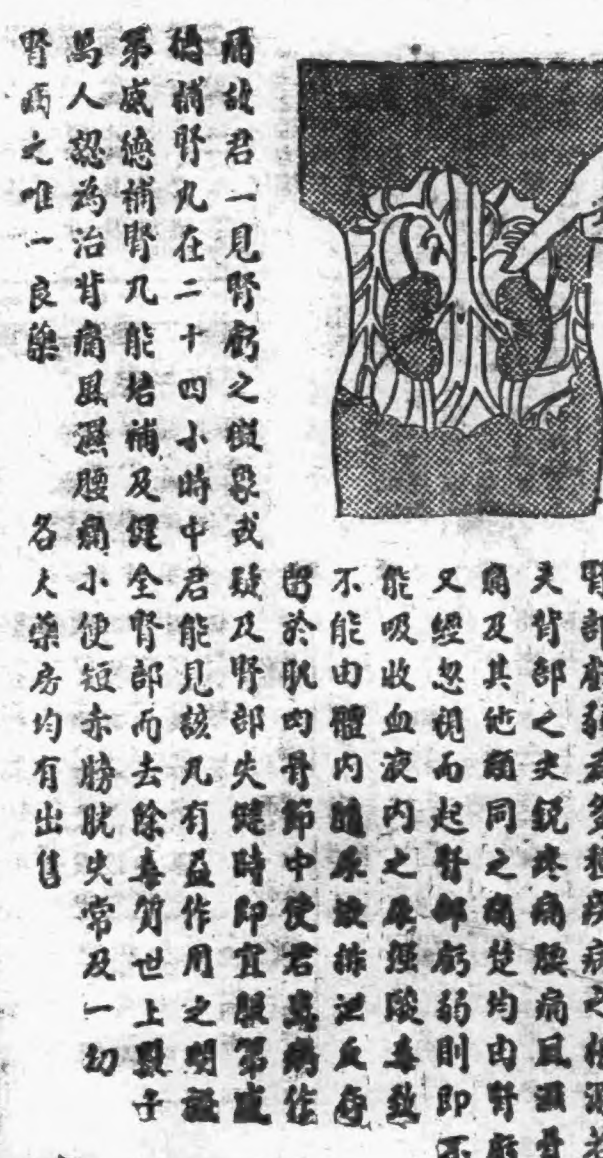 腎部虧弱為多種疾病之根源若
夫背部之尖銳疼痛腰痛風濕骨
痛及其他類同之痛楚均由腎虧
又經忽視而起腎部虧弱則即不
能吸收血液內之尿強酸毒致
不能由體內隨尿液排泄反存
留於肌肉骨節中使君患病作
痛故君一見腎虧之徵象或疑及腎部失健時即宜服第威
德補腎丸在二十四小時中君能見該丸有益作用之明證
第威德補腎丸能培補及健全腎部而去除毒質世上數千
萬人認為治背痛風濕腰痛小便短赤膀胱失常及一切
腎病之唯一良藥 各大藥房均有出售